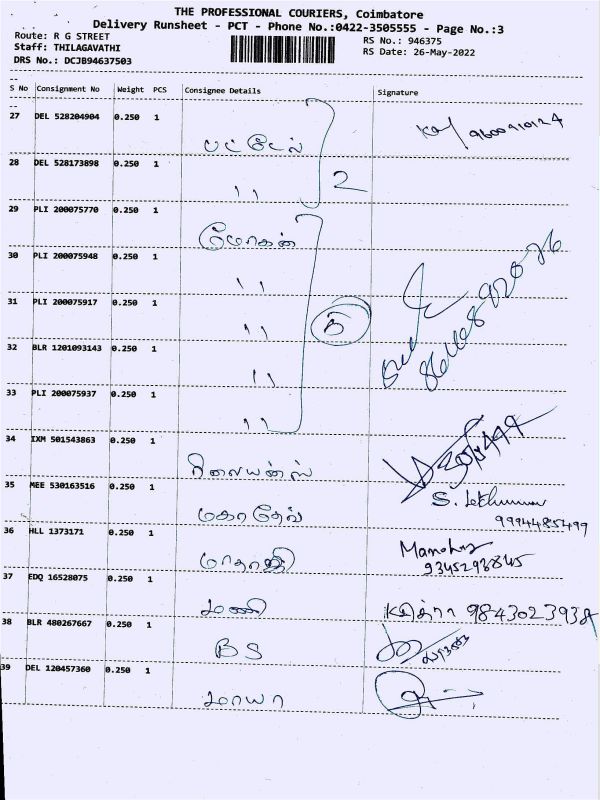 THE PROFESSIONAL COURIERS, Coimbatore
Delivery Runsheet - PCT - Phone No.:0422-3505555 - Page No.:3
Route: R G STREET
RS No.: 946375
Staff: THILAGAVATHI
RS Date: 26-May-2022
DRS No.: DCJB94637503
S No Consignment No Weight PCS Consignee Details Signature
27 DEL 528204904 0.250 1
பட்டேல் 9600910124
28 DEL 528173898 0.250 1
" 2
29 PLI 200075770 0.250 1
மோகன்
30 PLI 200075948 0.250 1
"
31 PLI 200075917 0.250 1
" 5
32 BLR 1201093143 0.250 1
"
33 PLI 200075937 0.250 1
"
34 IXM 501543863 0.250 1
ரிலையன்ஸ்
35 MEE 530163516 0.250 1
மகாதேவ் S. 9994485499
36 HLL 1373171 0.250 1
மாதாஜி 9345293845
37 EDQ 16528075 0.250 1
மணி 9843023938
38 BLR 480267667 0.250 1
BS
39 DEL 120457360 0.250 1
மாயா